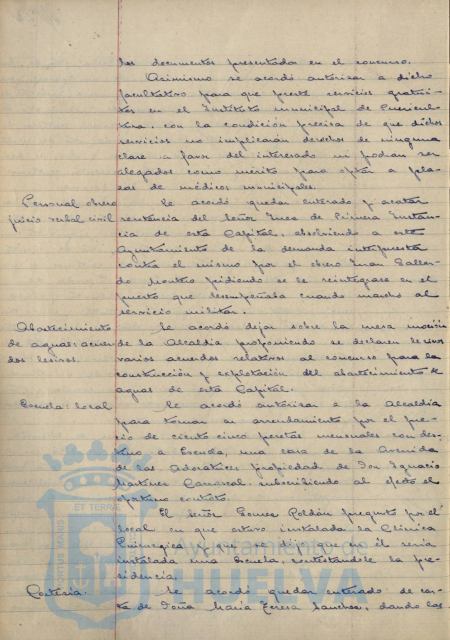 los documentos presentados en el concurso.
Asimismo se acordó autorizar a dicho
facultativo para que preste servicios gratui-
tos en el Instituto municipal de Puericul-
tura, con la condición precisa de que dichos
servicios no implicarán derechos de ninguna
clase a favor del interesado ni podran ser
alegados como mérito para optar a pla-
zas de médicos municipales.
Personal obrero
juicio verbal civil
Se acordó quedar enterado y acatar
sentencia del Señor Juez de Primera Instan-
cia de esta Capital, absolviendo a este
Ayuntamiento de la demanda interpuesta
contra el mismo por el obrero Juan Galler-
do Montero pidiendo se le reintegrase en el
puesto que desempeñaba cuando marcho al
servicio militar.
Abastecimiento
de aguas: acuer
dos lesivos.
Se acordó dejar sobre la mesa moción
de la Alcaldia proponiendo se declaren lesivos
varios acuerdos relativos al concurso para la
construcción y explotación del abastecimiento de
aguas de esta Capital.
Escuela: local
Se acordó autorizar a la Alcaldia
para tomar en arrendamiento por el pre-
cio de ciento cinco pesetas mensuales con des-
tino a Escuela, una casa de la Avenida
de las Adoratrices propiedad de Don Ignacio
Martinez Carvajal subscribiendo al efecto el
oportuno contrato.
El señor Gomez Roldán preguntó por el
local en que estuvo instalada la Clinica
Quirurgica y que se dijo que en él seria
instalada una Escuela, contestándole la pre-
sidencia.
Cortesia.
Se acordó quedar enterado de car-
ta de Doña Maria Teresa Sanchez, dando las
ET TERRAE
PORTUS MARIS
Ayuntamiento de
HUELVA